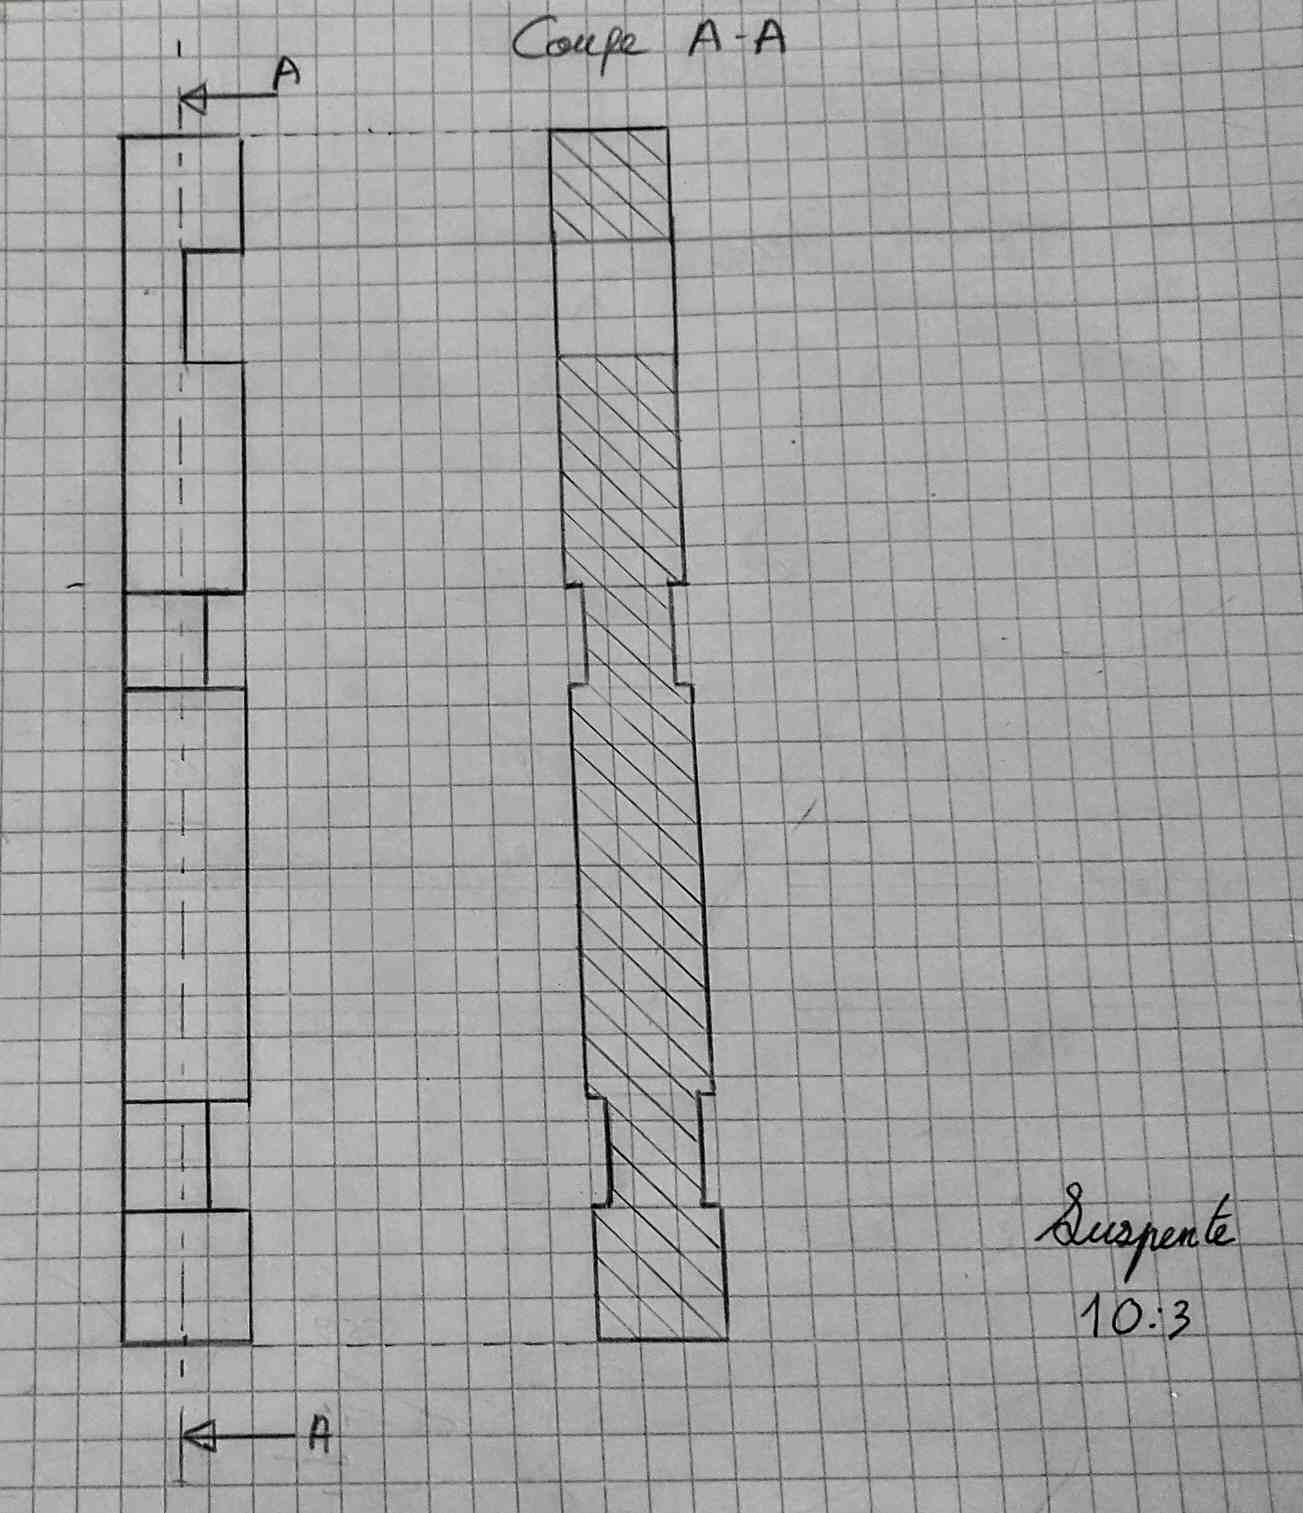 Coupe A-A
A
A
Suspente
10:3